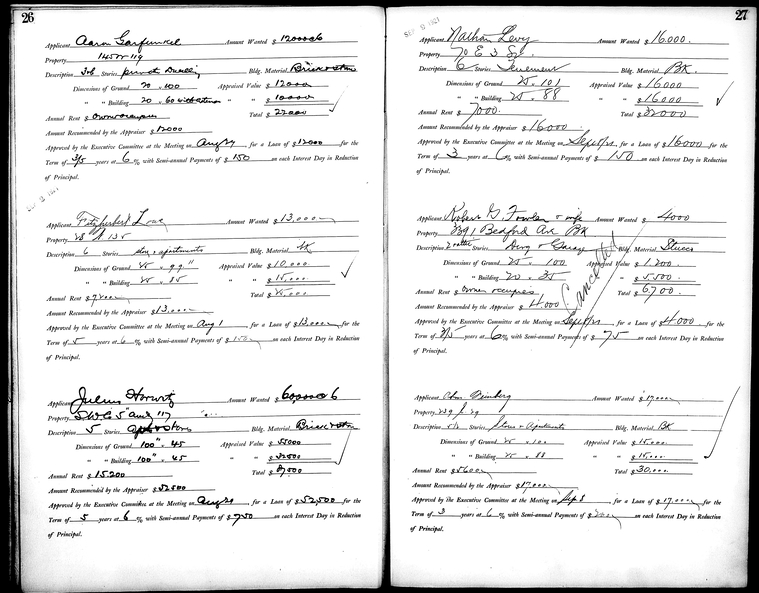 26
Applicant Aaron Garfunkel Amount Wanted $ 12000 @ 6
Property 145 W 119
Description 3 & b Stories private Dwelling Bldg. Material Brick & stone
Dimensions of Ground 20 . 100 Appraised Value $ 12000
" " Building 20 . 60 " " $ 10000
Annual Rent $ owner occupies Total $ 22000
Amount Recommended by the Appraiser $ 12000
Approved by the Executive Committee at the Meeting on Aug 24 for a Loan of $ 12000 for the
Term of 3/5 years at 6 % with Semi-annual Payments of $ 150 on each Interest Day in Reduction
of Principal.
SEP 2 1921
Applicant Fitzherbert Amount Wanted $ 13,000
Property
Description 6 Stories & apartments Bldg. Material
Dimensions of Ground Appraised Value $ 10,000
" " Building " " $ 15,000
Annual Rent $ Total $ 25,000
Amount Recommended by the Appraiser $ 13,000
Approved by the Executive Committee at the Meeting on Aug 1 for a Loan of $ 13,000 for the
Term of 5 years at 6 % with Semi-annual Payments of $ 150 on each Interest Day in Reduction
of Principal.
Applicant Julius Horwitz Amount Wanted $ 60,000 @ 6
Property S.W.C. 5" Ave & 117
Description 5 Stories Bldg. Material Brick & stone
Dimensions of Ground 100" . 45 Appraised Value $ 55000
" " Building 100" . 45 " " $ 32500
Annual Rent $ 15200 Total $ 87,500
Amount Recommended by the Appraiser $ 52500
Approved by the Executive Committee at the Meeting on Aug 24 for a Loan of $ 52,500 for the
Term of 5 years at 6 % with Semi-annual Payments of $ 750 on each Interest Day in Reduction
of Principal.
27
SEP 9 1921
Applicant Nathan Levy Amount Wanted $ 16000.
Property 70 E 3 St.
Description 6 Stories Tenement Bldg. Material BK.
Dimensions of Ground 25 . 101 Appraised Value $ 16000
" " Building 25 . 88 " " $ 16000
Annual Rent $ 7000. Total $ 32000
Amount Recommended by the Appraiser $ 16000
Approved by the Executive Committee at the Meeting on Sept for a Loan of $ 16000 for the
Term of 3 years at 6 % with Semi-annual Payments of $ 150 on each Interest Day in Reduction
of Principal.
Applicant Robert G. Fowler & wife Amount Wanted $ 4000
Property Bedford Ave BK
Description 2 Stories Dwg & Garage Bldg. Material Stucco
Dimensions of Ground 25 . 100 Appraised Value $ 1,200
" " Building 20 . 35 " " $ 5,500
Annual Rent $ owner occupies Total $ 6700.
Amount Recommended by the Appraiser $ 4000
Cancelled
Approved by the Executive Committee at the Meeting on Sept for a Loan of $ 4000 for the
Term of 3/5 years at 6 % with Semi-annual Payments of $ 75 on each Interest Day in Reduction
of Principal.
Applicant Chas. Feinberg Amount Wanted $ 17,000
Property
Description Stories Stores & Apartments Bldg. Material BK
Dimensions of Ground 25 . 100 Appraised Value $ 15,000.
" " Building 25 . 88 " " $ 15,000.
Annual Rent $ 5600 Total $ 30,000.
Amount Recommended by the Appraiser $ 17,000
Approved by the Executive Committee at the Meeting on Sep 8 for a Loan of $ 17,000 for the
Term of 3 years at 6 % with Semi-annual Payments of $ 200 on each Interest Day in Reduction
of Principal.